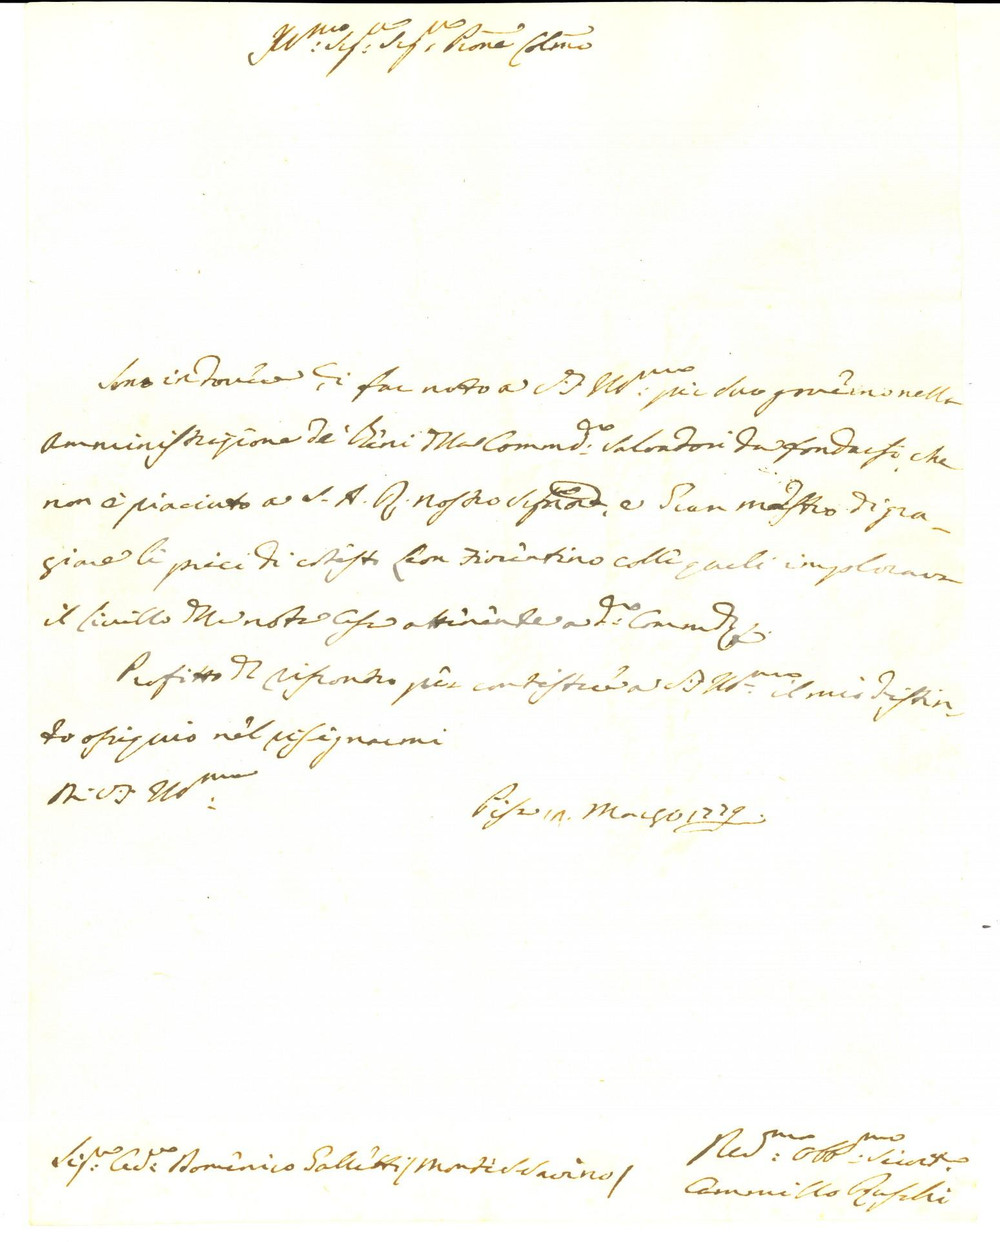 Ill:mo Sig:re Sig:re Prone Colmo
Sono in dovere di far noto a V.S. Ill:ma per suo governo nella
amministrazione de' Beni della Commda: Salvadori da fondarsi, che
non è piaciuto a S. A. R. nostro Signore, e Gran Maestro di gra-
ziare le preci di cotesto Leon Fiorentino colle quali implorava
il livello della nota Casa attinente a da: Commda.
Profitto del riscontro per contestare a V.S. Ill:ma il mio distin-
to ossequio nel rassegnarmi
Di V.S. Ill:ma
Pisa Marzo 1779.
Sig:re Cav:re Domenico Galletti /Monte S. Savino/
Dev:mo Obb:mo Servit:e
Cammillo Ruschi